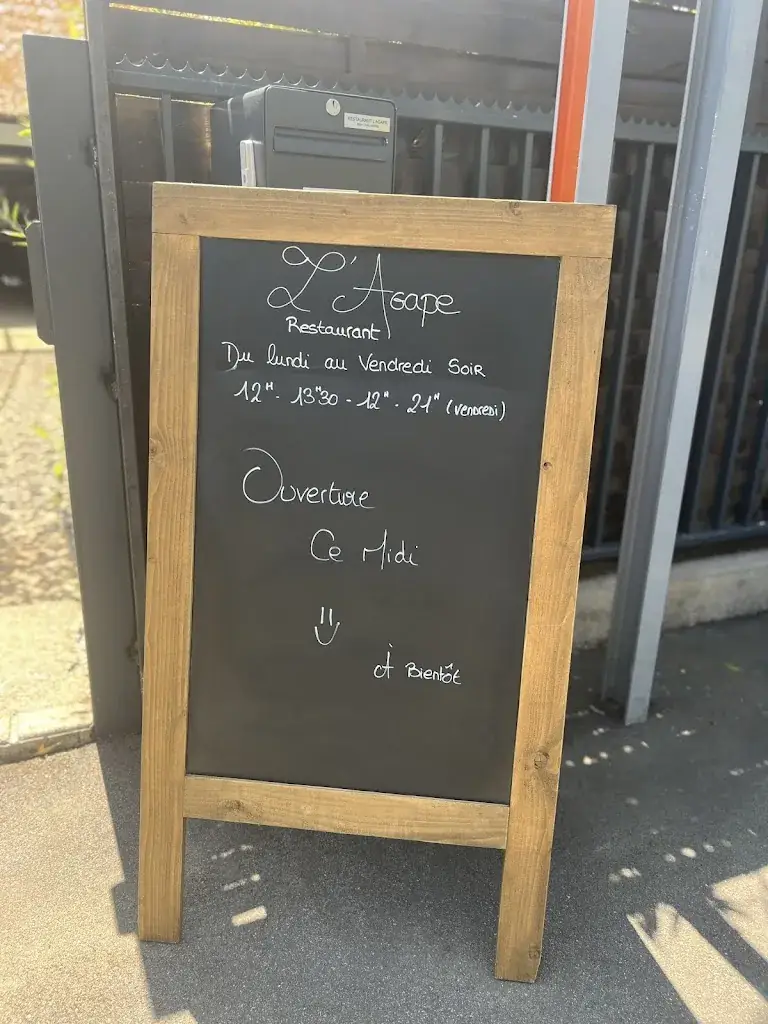 RESTAURANT L'AGAPE
L'Agape
Restaurant
Du lundi au Vendredi Soir
12H - 13H30 - 12H - 21H (vendredi)
Ouverture
Ce Midi
À Bientôt